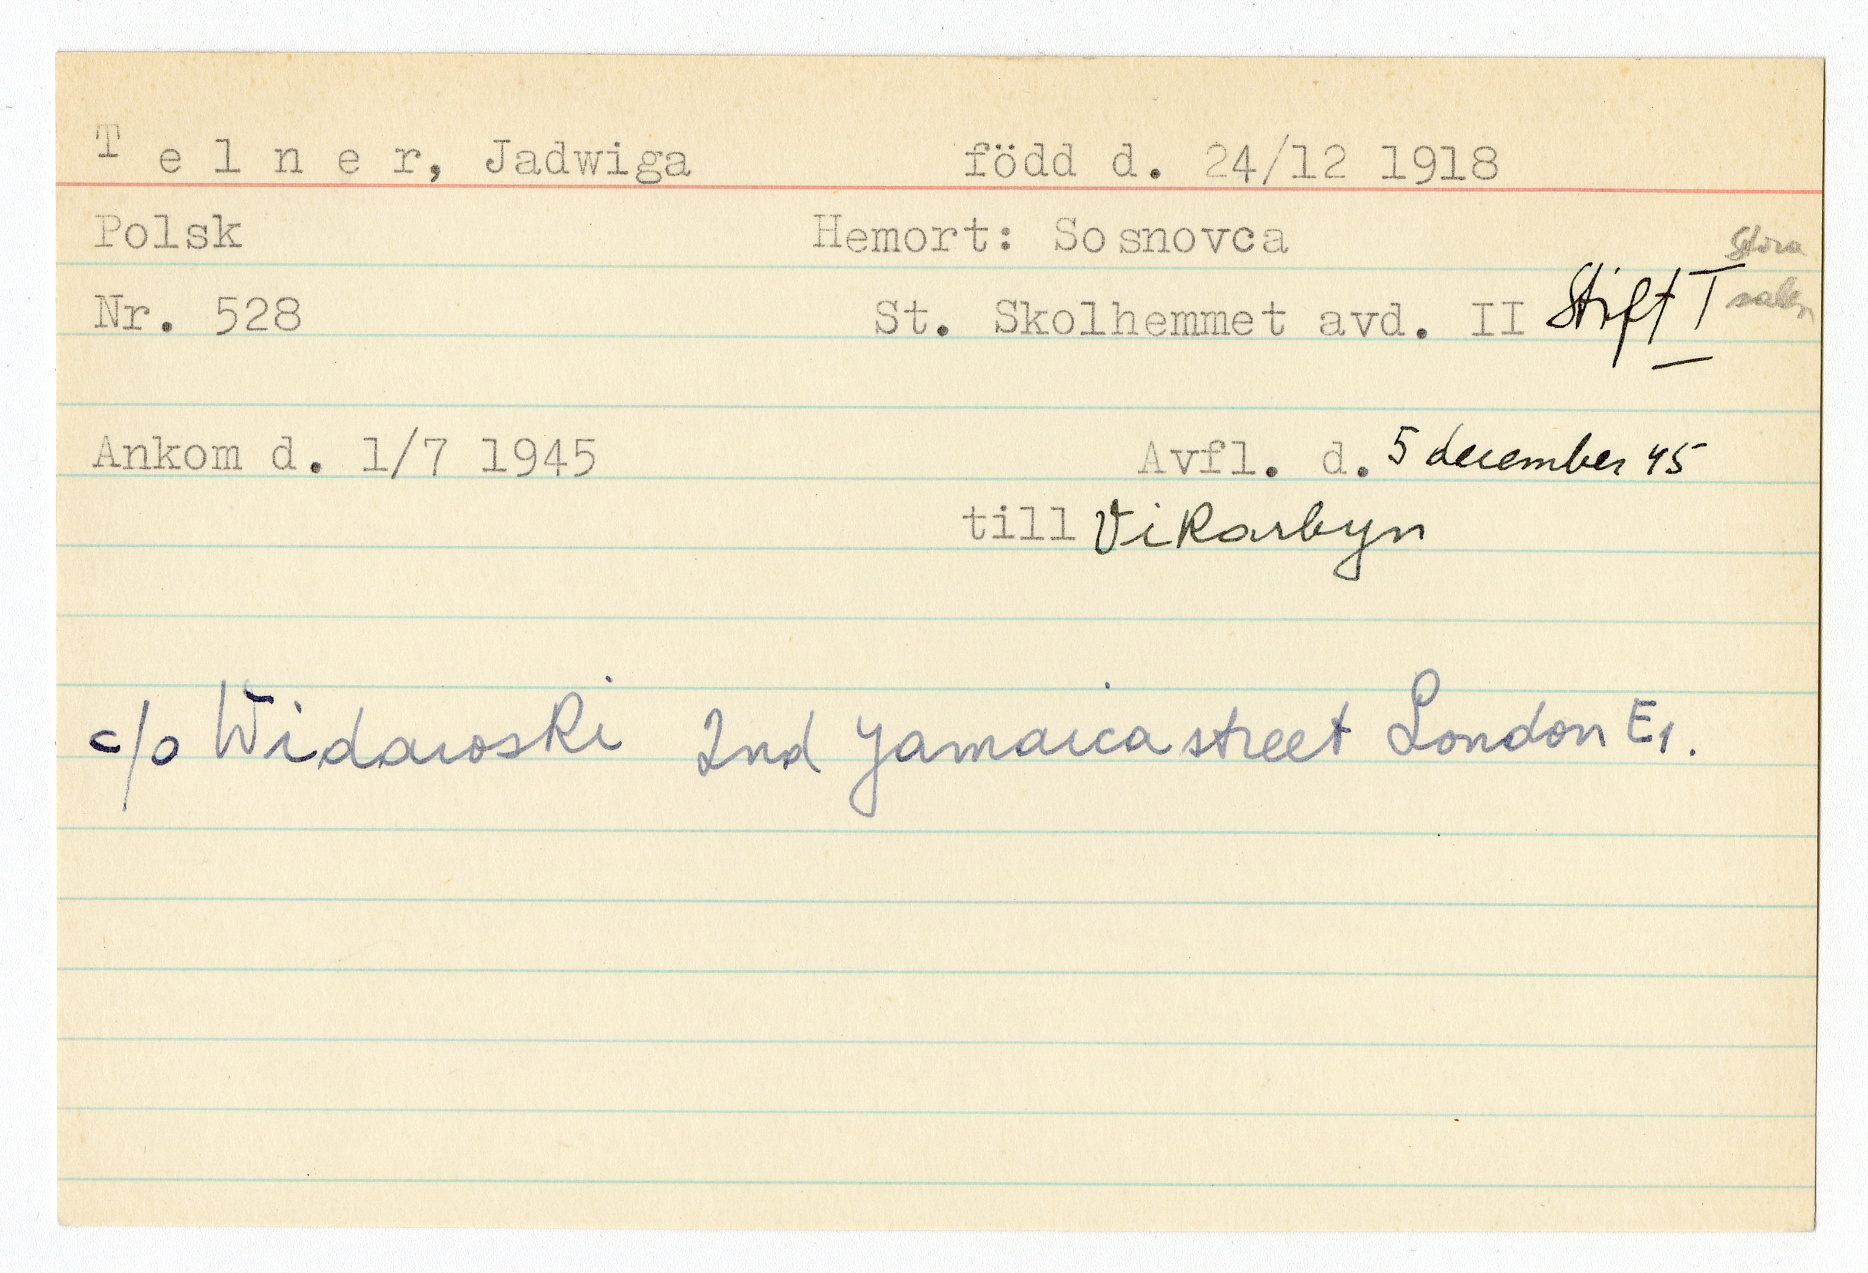 T e l n e r, Jadwiga född d. 24/12 1918
Polsk Hemort: Sosnovca Stora
Nr. 528 St. Skolhemmet avd. II Stift I salen
Ankom d. 1/7 1945 Avfl. d. 5 december 45
till Vikarbyn
c/o Widawski 2nd Jamaica street London E1.